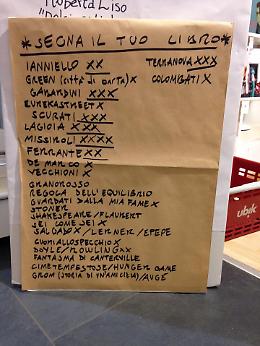 Roberta Liso
*SEGNA IL TUO LIBRO*
IANNIELLO XX
TERRANOVA XXX
GREEN (città di carta) X
COLOMBATI X
GANARDINI XXX
EUREKASTREET X
SCURATI XXX
LAGIOIA XXX
MISSIROLI XXXX
FERRANTE XX
DE MARCO X
VECCHIONI X
GRANOROSSO
REGOLA DELL'EQUILIBRIO
GUARDATI DALLA MIA FAME X
STONER
SHAKESPEARE/FLAUBERT
SEI COME SEI X
SALGADO X/LERNER/EFEPE
CUORIALLOSPECCHIO X
DOYLE/ROWLING XX
FANTASMA DI CANTERVILLE
CIMETEMPESTOSE/HUNGER GAME
GROM (STORIA DI UN'AMICIZIA)/AUGE
ubik